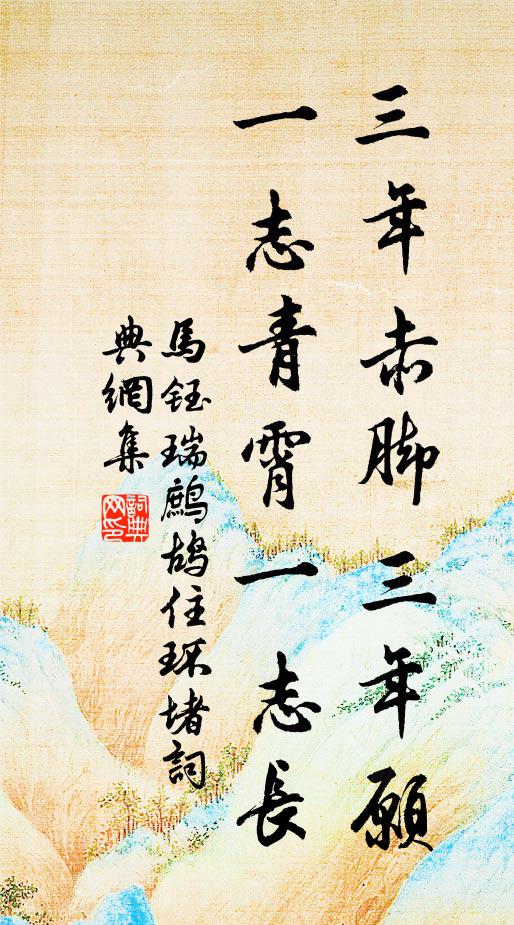 三年赤脚三年願
一志青霄一志長
馬鈺瑞鷓鴣住环堵詞
典網集
詞典网印